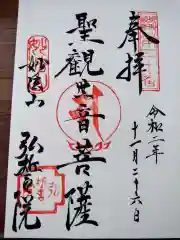 奉拝
令和二年
十一月二十六日
聖観世音菩薩
妙法山
弘誓院